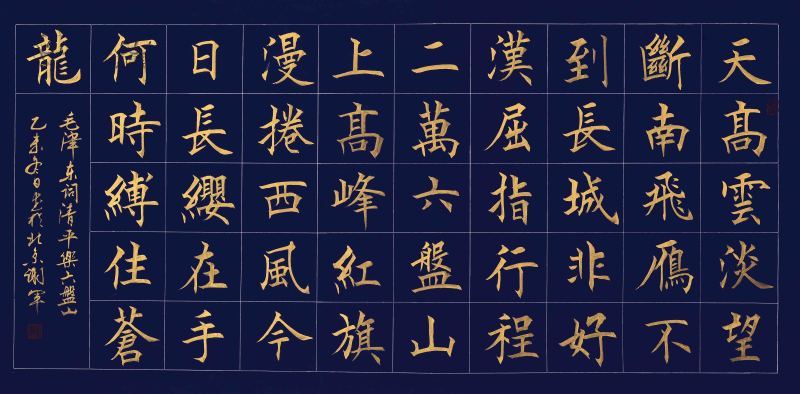 天高雲淡望
斷南飛鴈不
到長城非好
漢屈指行程
二萬六盤山
上高峰紅旗
漫捲西風今
日長纓在手
何時縛住蒼
龍
毛澤东词清平樂六盤山
乙未冬日书於北京謝军